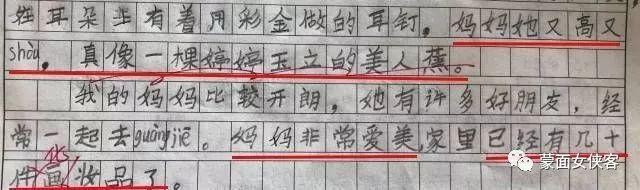 耳朵上有着用彩金做的耳钉。妈妈她又高又
shòu。真像一棵婷婷玉立的美人蕉。
我的妈妈比较开朗，她有许多好朋友，经
常一起去guàngjiē。妈妈非常爱美,家里已经有几十
化
件画妆品了。
蒙面女侠客